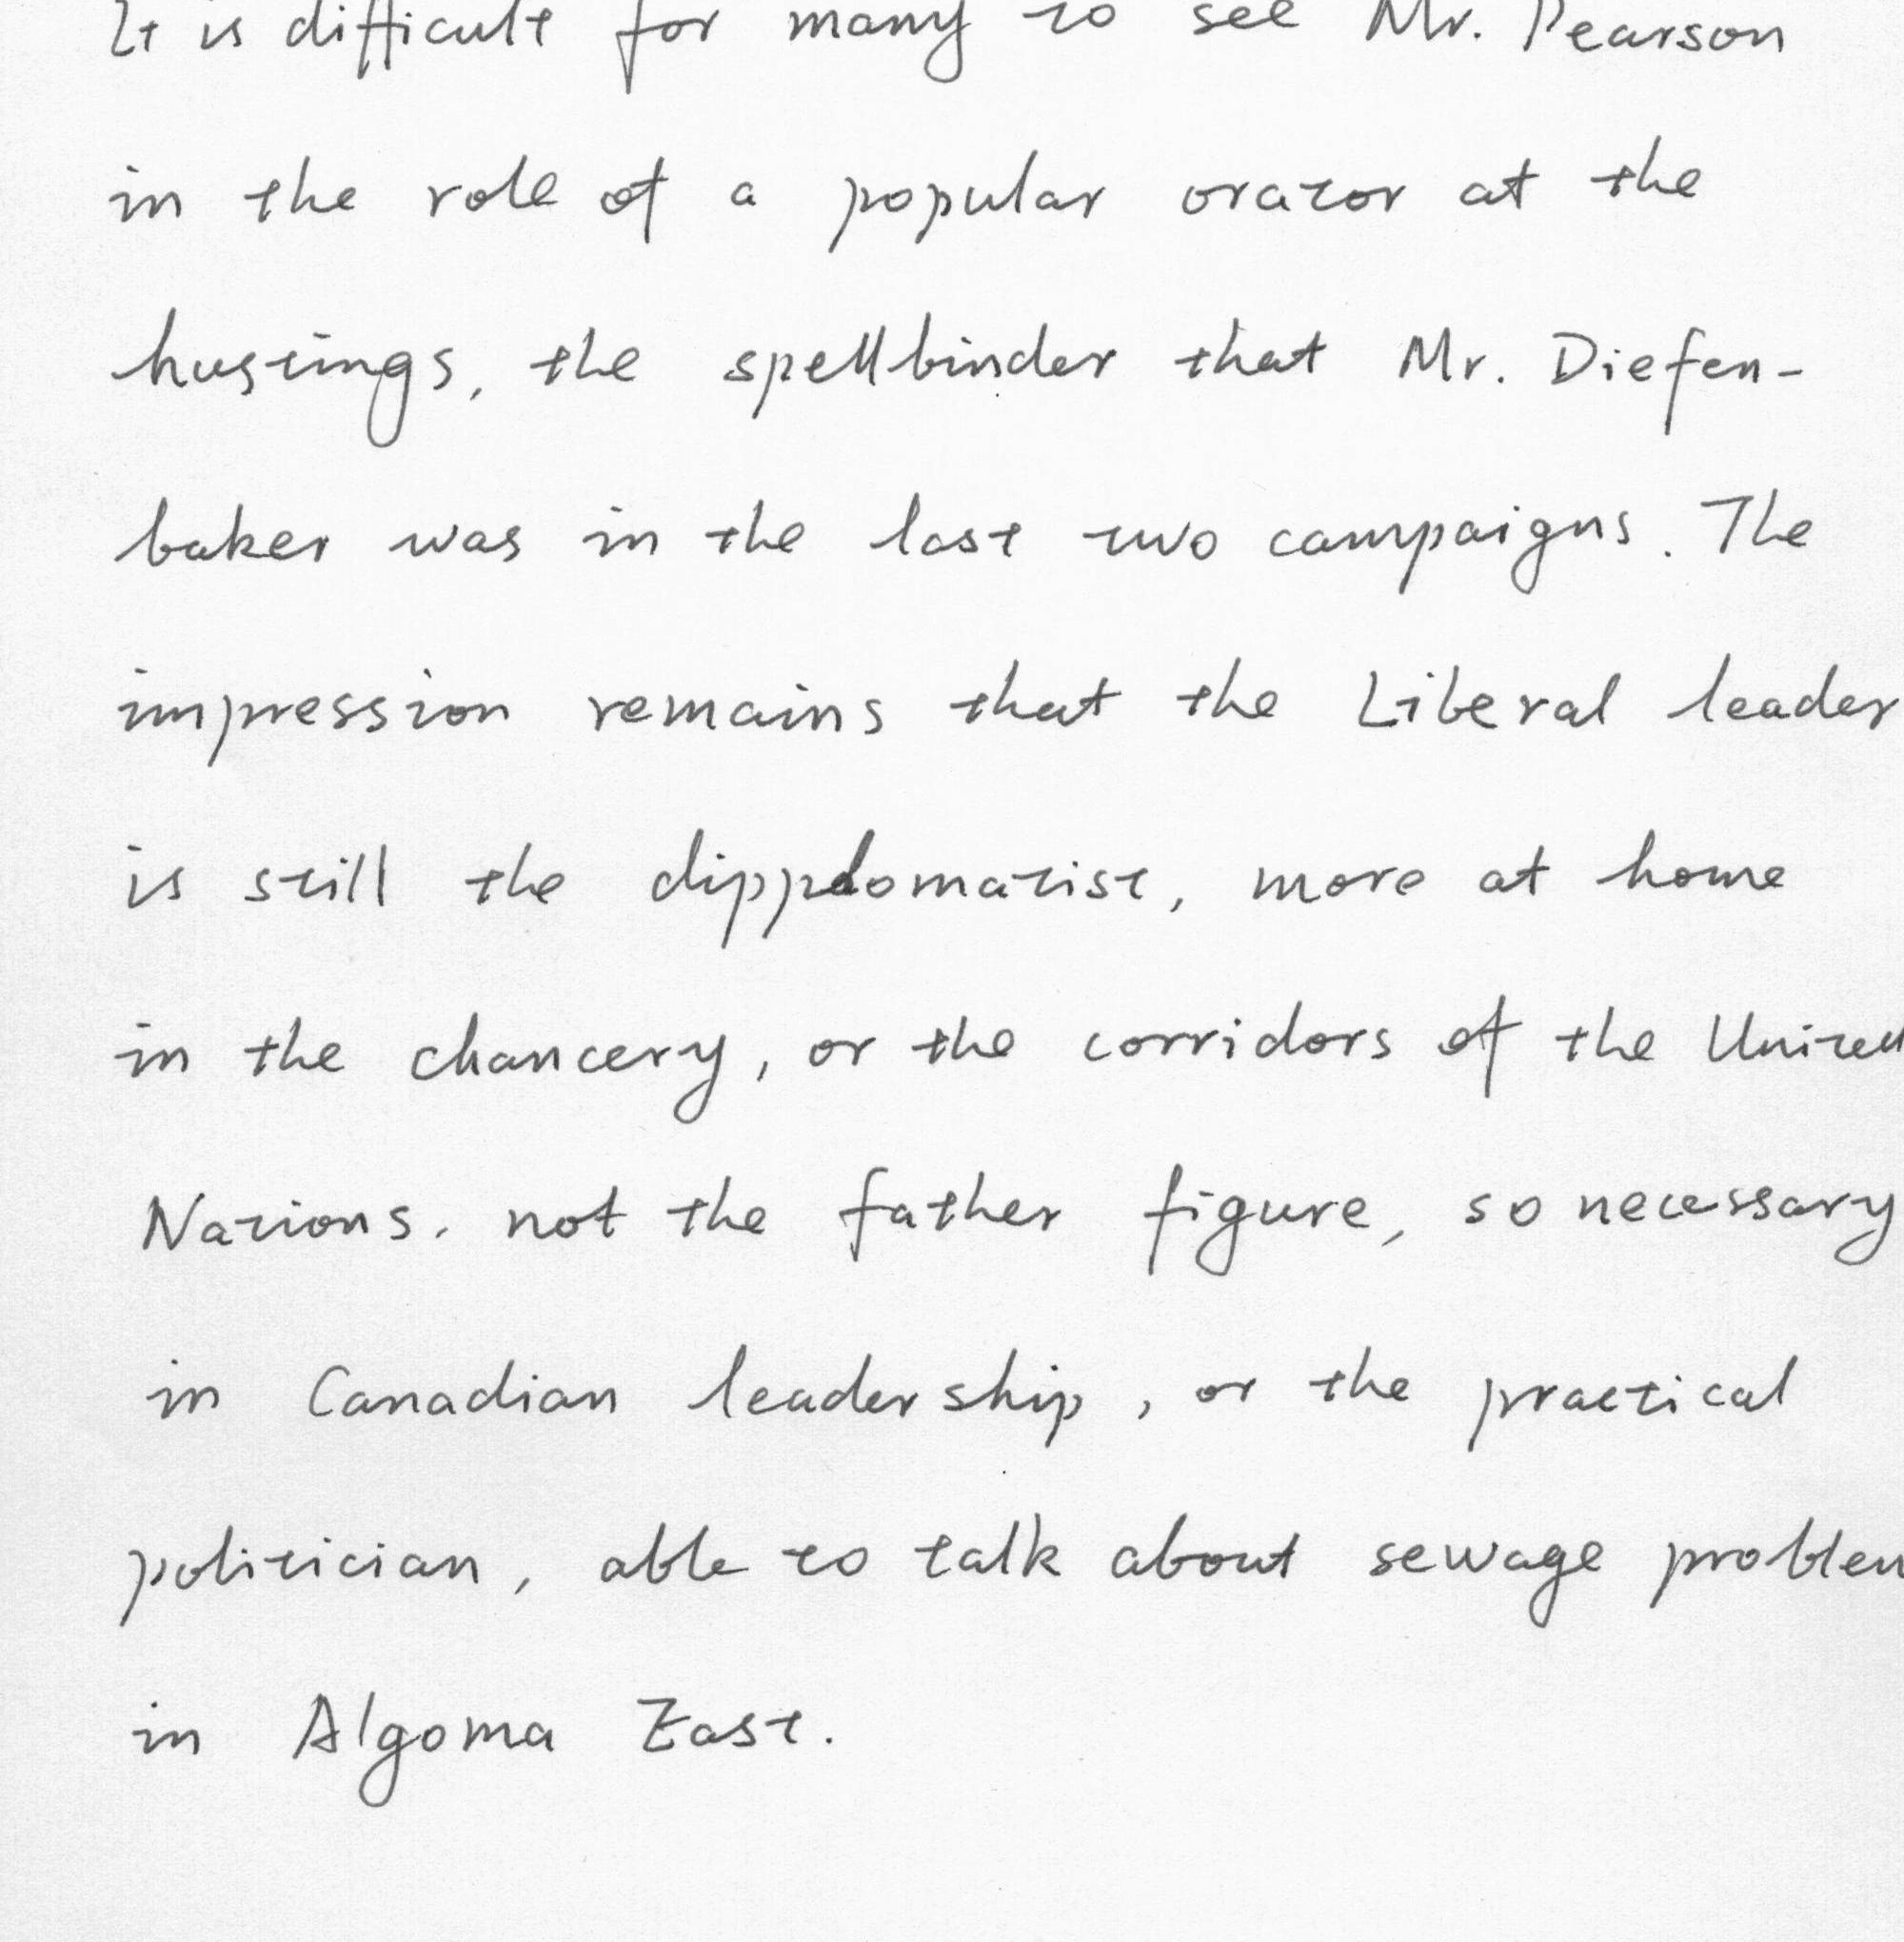 It is difficult for many to see Mr. Pearson
in the role of a popular orator at the
hustings, the spellbinder that Mr. Diefen-
baker was in the last two campaigns. The
impression remains that the Liberal leader
is still the dipplomatist, more at home
in the chancery, or the corridors of the United
Nations. not the father figure, so necessary
in Canadian leadership, or the practical
politician, able to talk about sewage problem
in Algoma East.